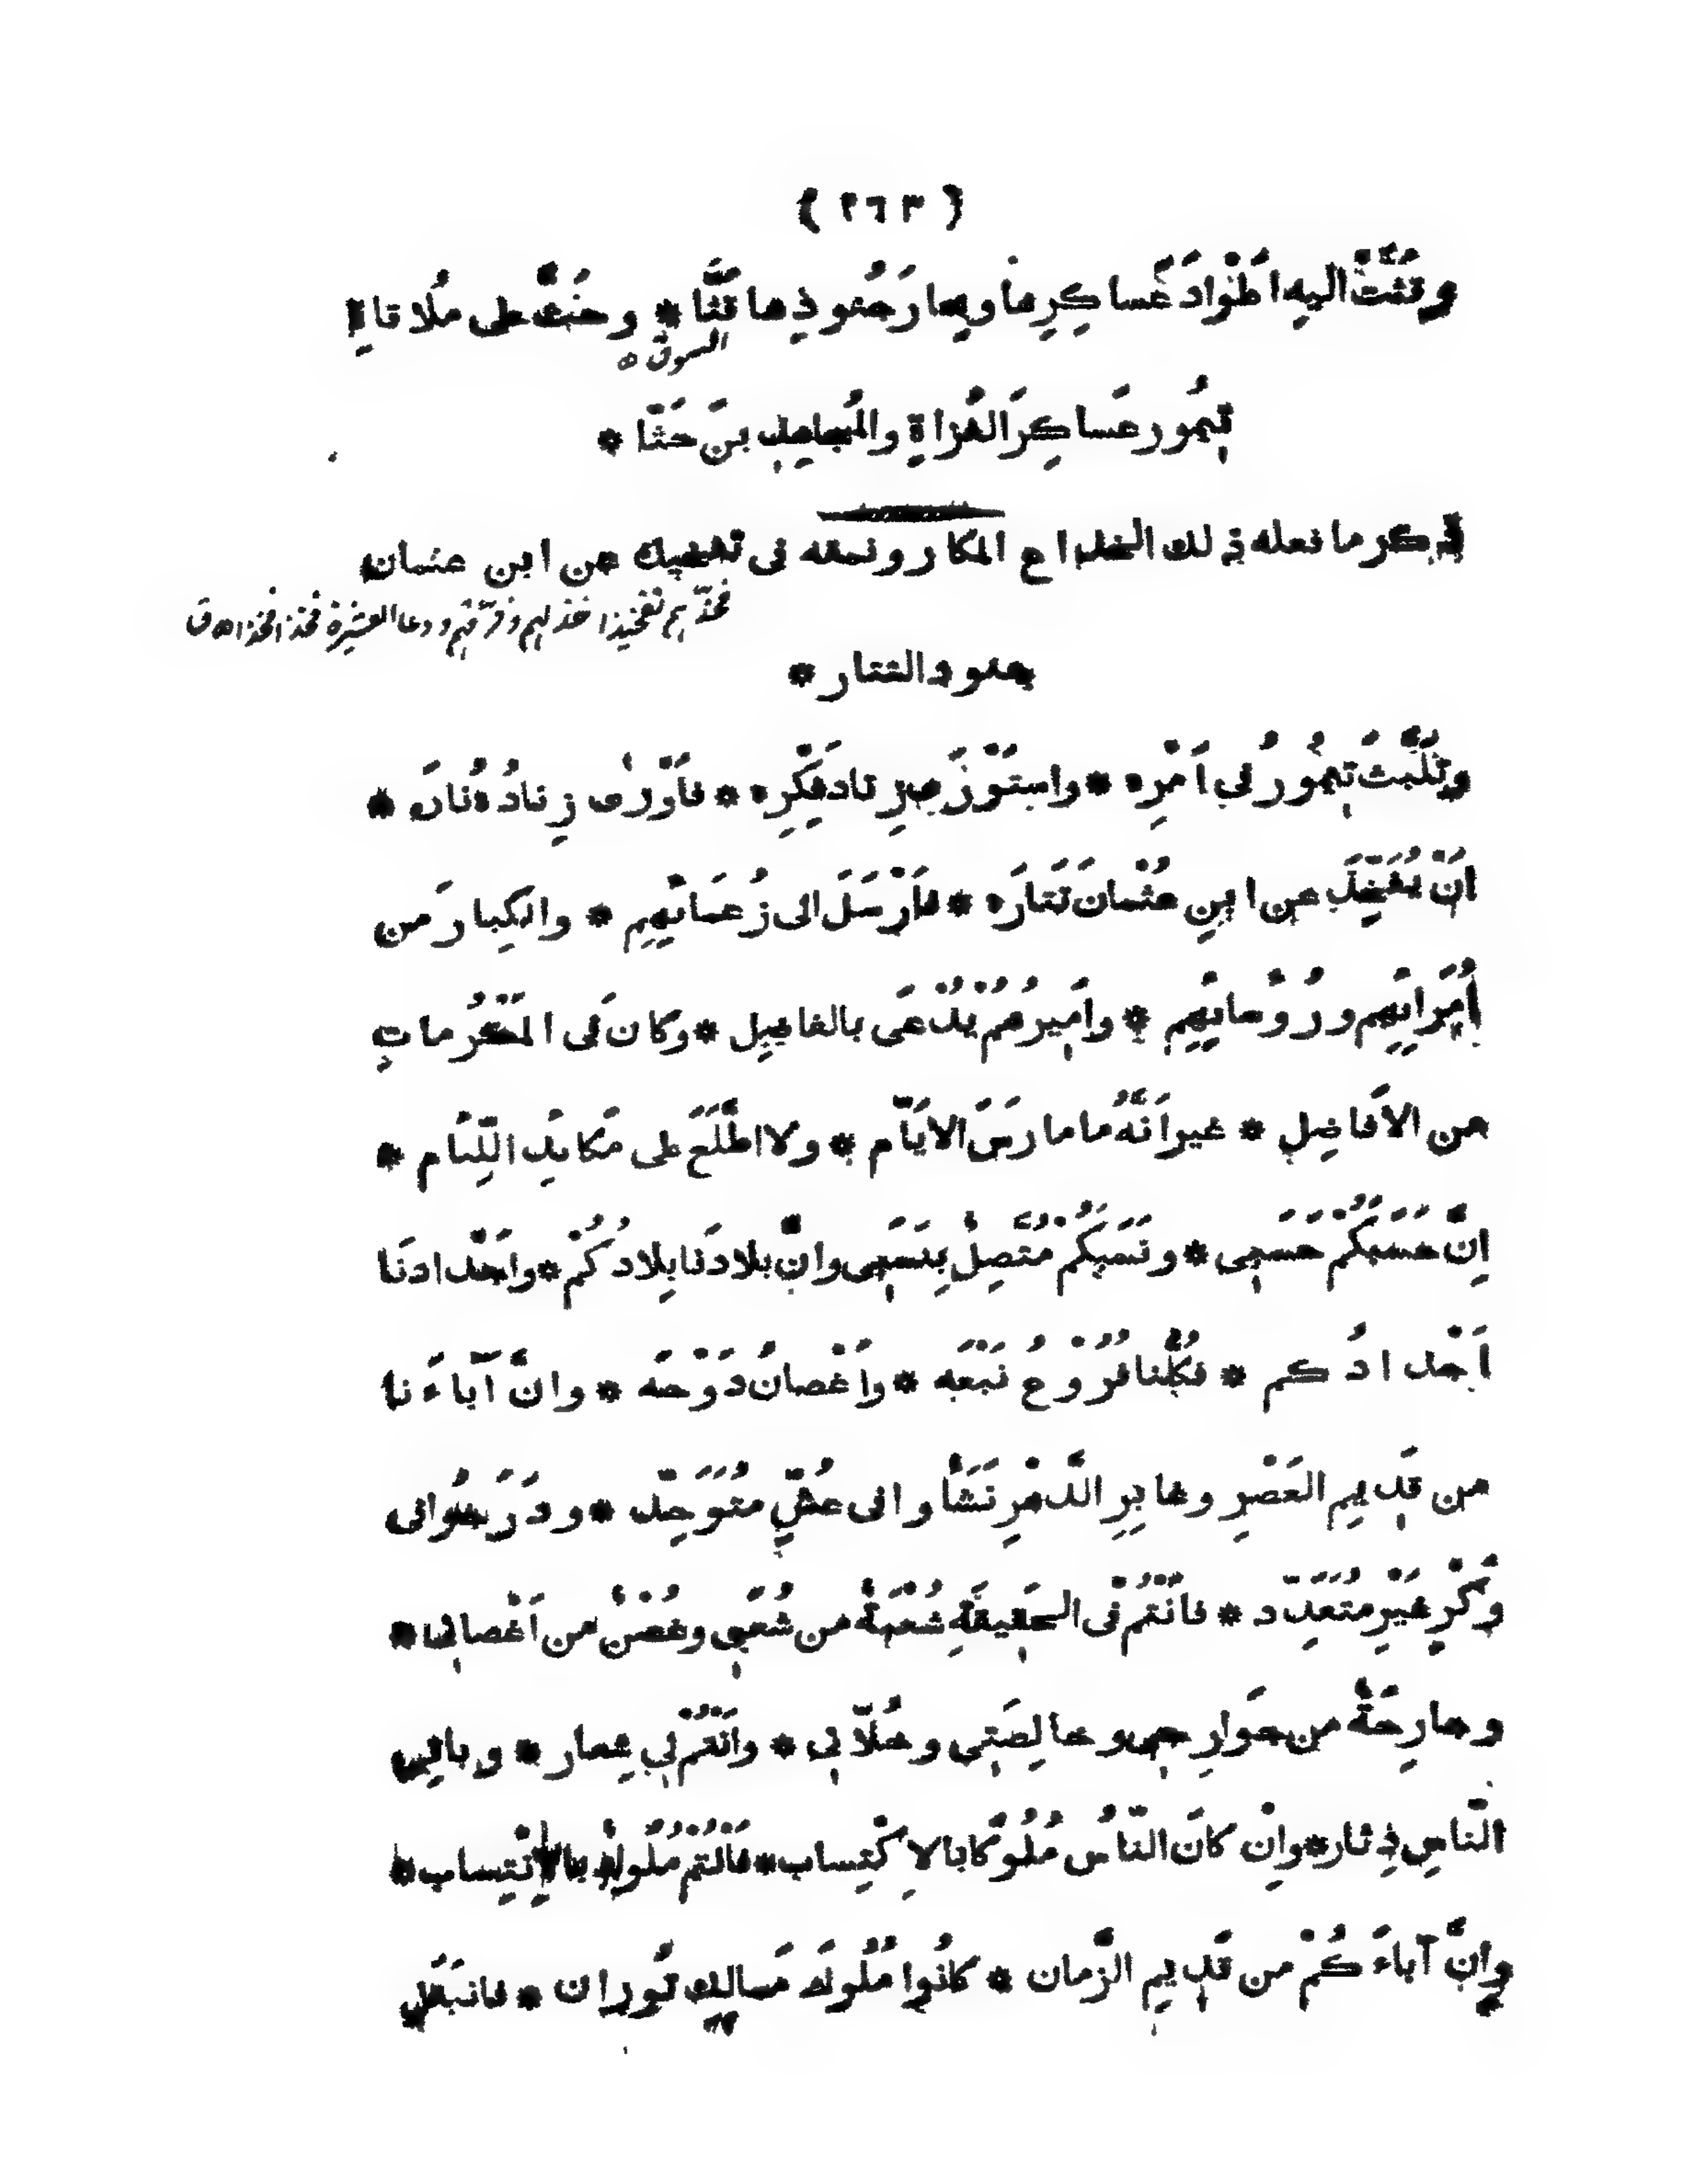 ( ٢٦٣ )
وقثت اليه اَطْوادَ عَساكِرِها وبحارَ جُنُودِها قَثّا * وحَثَّ على مُلاقاةِ
السوق ه
تِيمُور عَساكِرَ الغُزاةِ والمُجاهِدِينَ حَثّا *
ذكر ما فعله ذلك الخداع المكار ونمقه فى تفخيذ عن ابن عثمان
فخذهم تفخيذا خذلهم وفرقهم ودعا العشيرة فخذا فخذا ه ق
جنود التتار *
وتَلَبَّثَ تِيمُورُ فى اَمْرِه * واسْتَوْرَى زِنادَ فِكْرِه * فاَوْرى زِنادُه نارَه *
اَنْ يُفَخِّذَ عن ابنِ عُثْمانَ تَتارَه * فاَرْسَلَ الى زُعَمائِهِم * والكِبارَ من
اُمَرائِهِم ورُؤَسائِهِم * واَمِيرُهُم يُدْعَى بالفاضِلِ * وكان فى المَكْرُماتِ
من الاَفاضِلِ * غير اَنَّهُ ما مارَسَ الاَيّام * ولا اطَّلَعَ على مَكايِدِ اللِّئام *
اِنَّ حَسَبَكُم حَسَبِى * ونَسَبَكُم مُتَّصِلٌ بِنَسَبِى وانّ بلادَنا بِلادُكُمْ * واَجْدادَنا
اَجْدادُكم * فكُلُّنا فُرُوعُ نَبْعَه * واَغْصانُ دَوْحَه * وانَّ آباءَنا
من قَدِيمِ العَصْرِ وغابِرِ الدَّهْرِ نَشَأُوا فى عُشٍّ مُتَوَحِّد * ودَرَجُوا فى
وَكْرٍ غَيْرِ مُتَعَدِّد * فاَنْتُم فى الحَقِيقَةِ شُعْبَةٌ من شُعَبِى وغُصْنٌ من اَغْصانِى *
وجارِحَةٌ من جَوارِحِى وخالِصَتِى وخُلّانِى * واَنْتُم لِى شِعار * وباقِى
النّاسِ دِثار * وانْ كانَ النّاسُ مُلُوكًا بالاِكْتِساب * فاَنْتُم مُلُوكٌ بالاِنْتِساب *
وانَّ آباءَكُمْ من قَدِيمِ الزَّمان * كانُوا مُلُوكَ مَمالِكِ تُوران * فانتَقَلَ